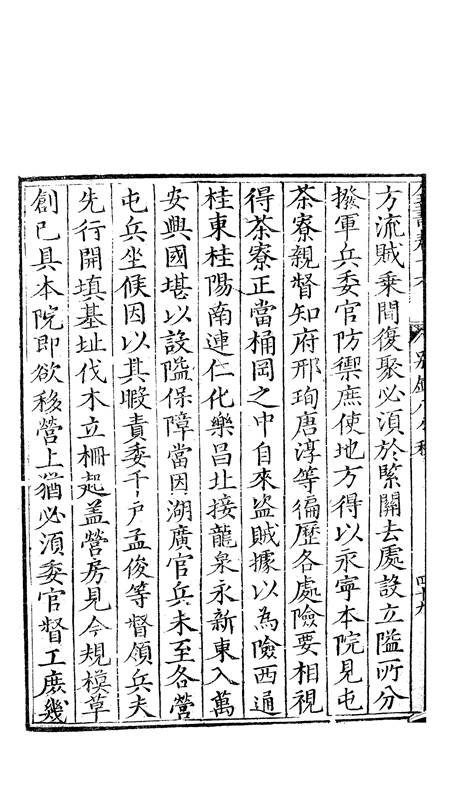 方流賊乗間復聚必須於緊關去處設立隘所分
撥軍兵委官防禦庶使地方得以永寧本院見屯
茶寮親督知府邢珣唐淳等徧歷各處險要相視
得茶寮正當桶岡之中自來盗賊據以為險西通
桂東桂陽南連仁化樂昌北接龍泉永新東入萬
安興國堪以設隘保障當因湖廣官兵未至各營
屯兵坐候因以其暇責委千户孟俊等督領兵夫
先行開填基址伐木立柵起盖營房見今規模草
創已具本院即欲移營上猶必須委官督工庶幾